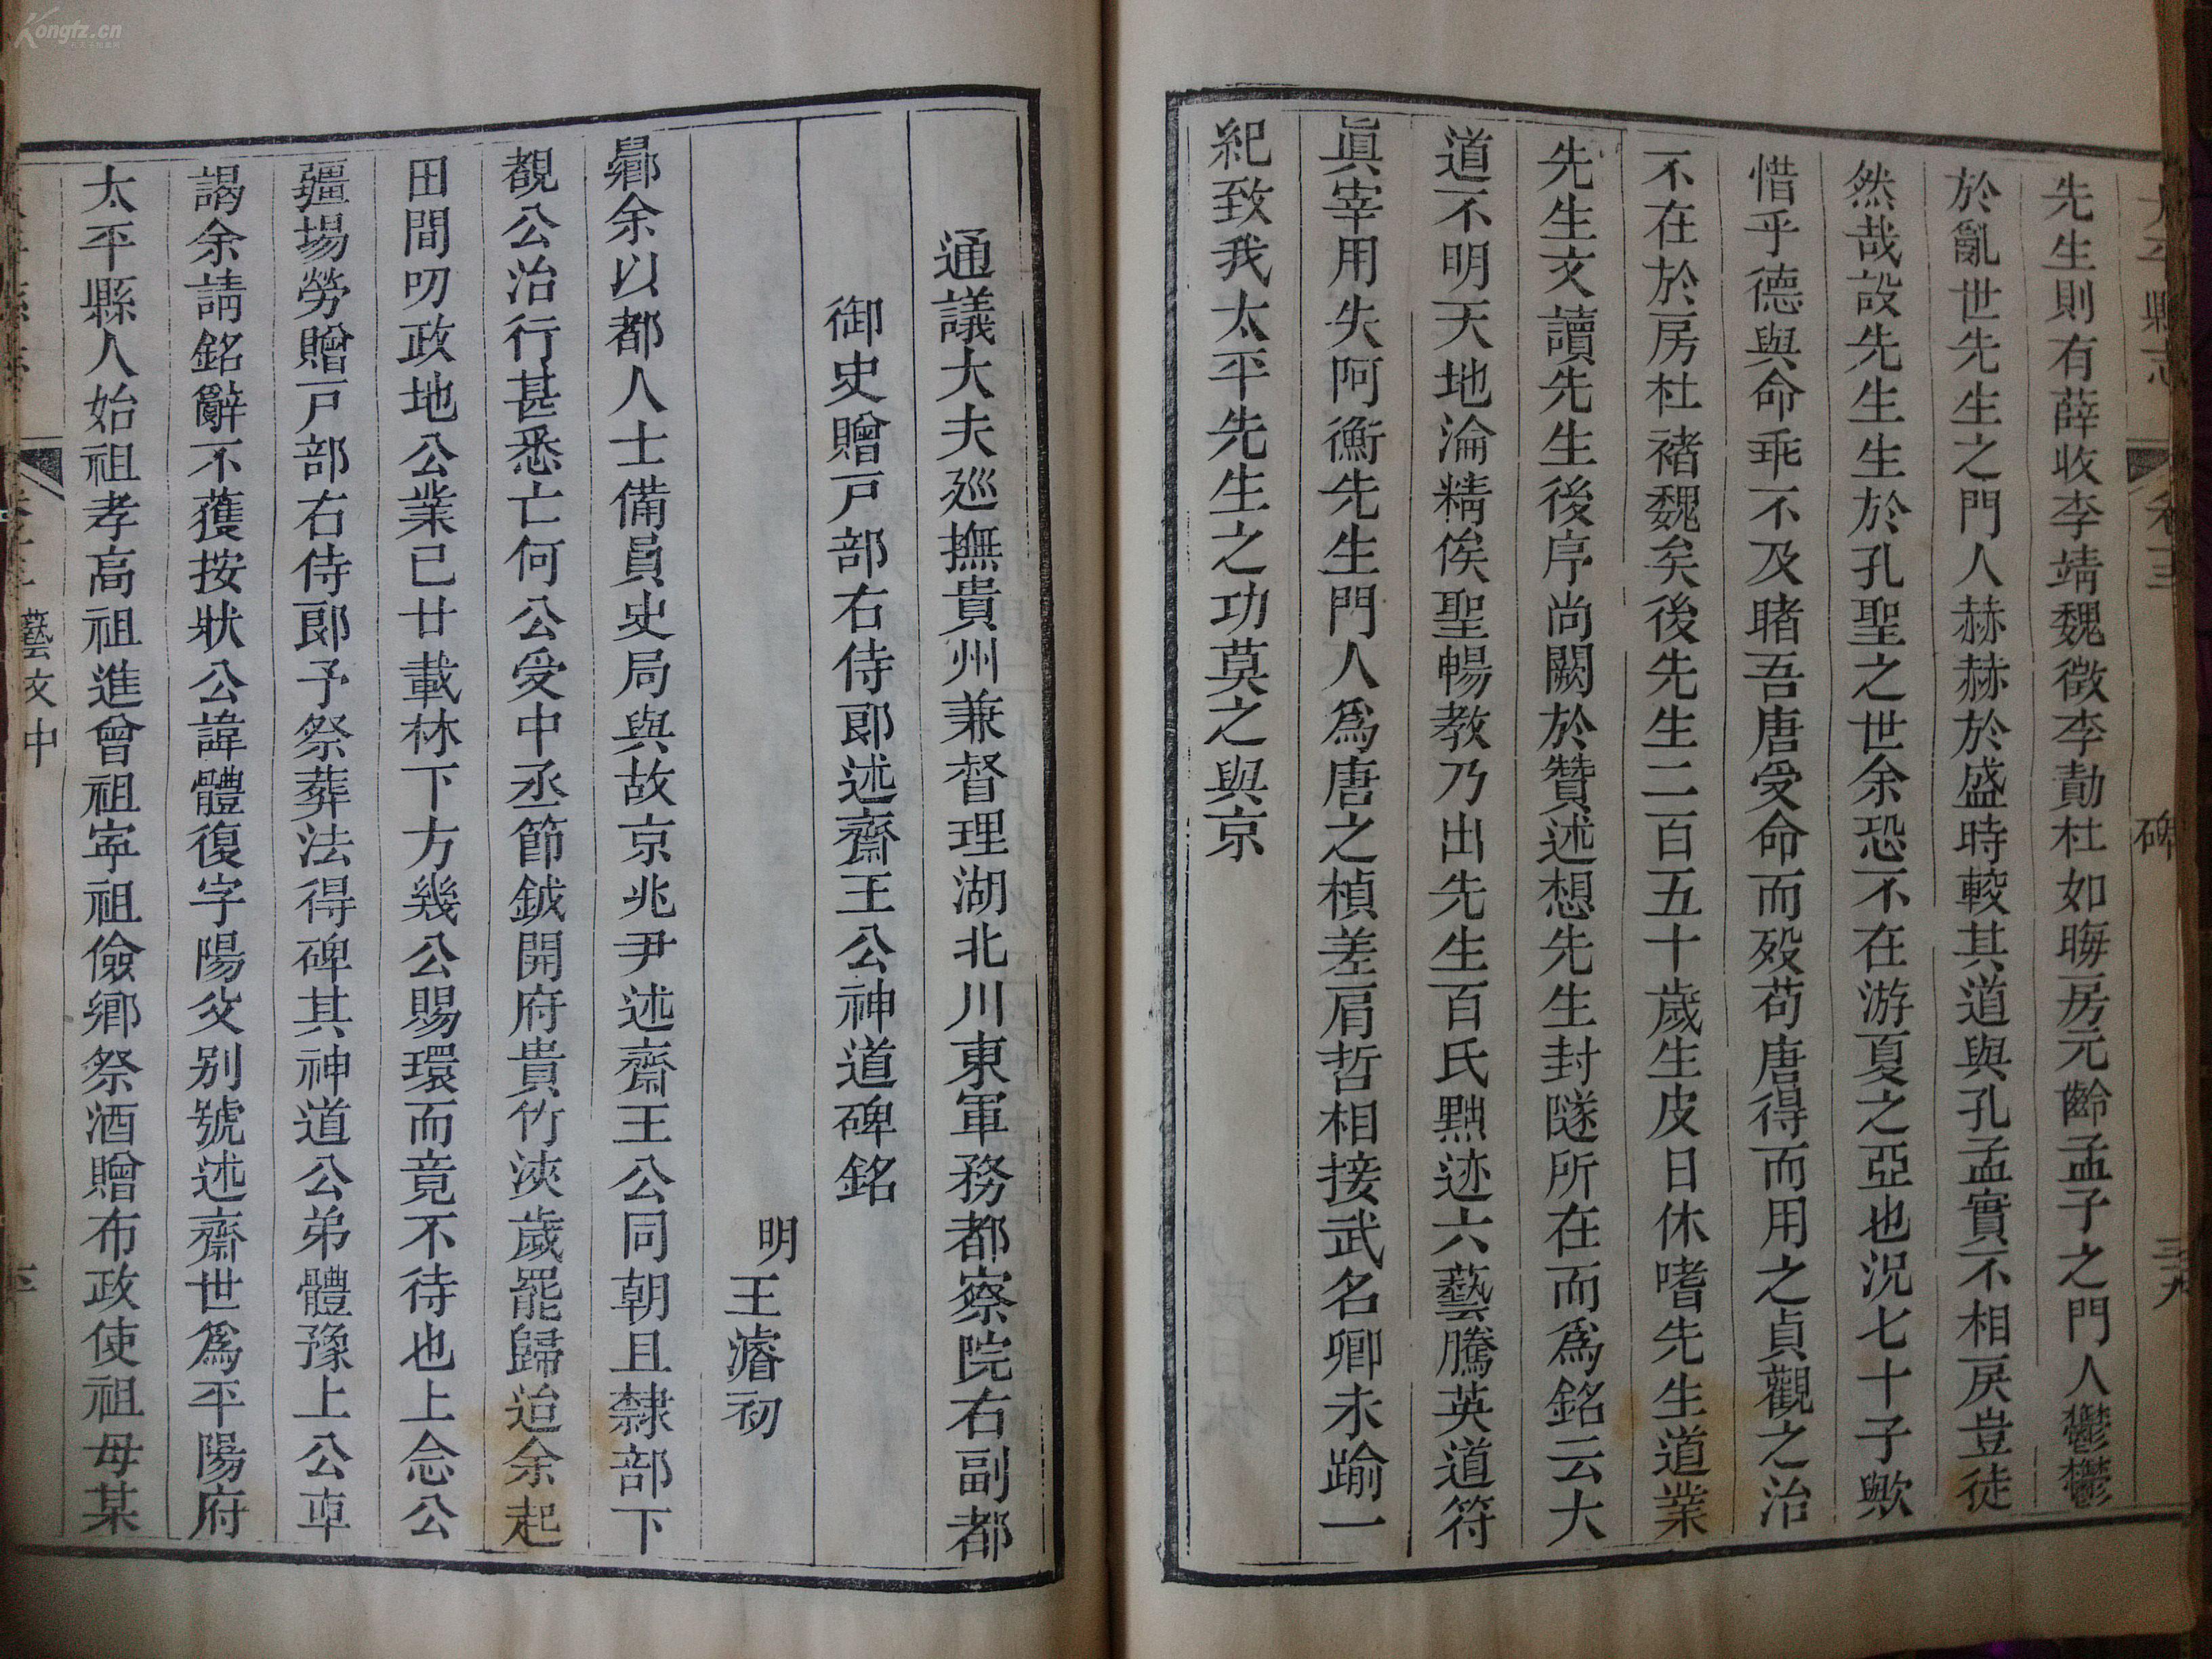 太平縣志 卷 碑
先生則有薛收李靖魏徵李勣杜如晦房元齡孟子之門人鬱鬱
於亂世先生之門人赫赫於盛時較其道與孔孟實不相戾豈徒
然哉設先生生於孔聖之世余恐不在游夏之亞也況七十子歟
惜乎德與命乖不及睹吾唐受命而歿苟唐得而用之貞觀之治
不在於房杜褚魏矣後先生二百五十歲生皮日休嗜先生道業
先生文讀先生後序尚闕於贊述想先生封隧所在而為銘云大
道不明天地淪精俟聖暢教乃出先生百氏黜迹六藝騰英道符
眞宰用失阿衡先生門人為唐之楨差肩哲相接武名卿未踰一
紀致我太平先生之功莫之與京
通議大夫廵撫貴州兼督理湖北川東軍務都察院右副都
御史贈戸部右侍郎述齋王公神道碑銘
明王濬初
曏余以都人士備員史局與故京兆尹述齋王公同朝且隸部下
覩公治行甚悉亡何公受中丞節鉞開府貴竹浹歲罷歸迨余起
田間叨政地公業已廿載林下方幾公賜環而竟不待也上念公
疆場勞贈戸部右侍郎予祭葬法得碑其神道公弟體豫上公車
謁余請銘辭不獲按狀公諱體復字陽父别號述齋世為平陽府
太平縣人始祖孝高祖進曾祖寕祖儉鄉祭酒贈布政使祖母某
藝文中